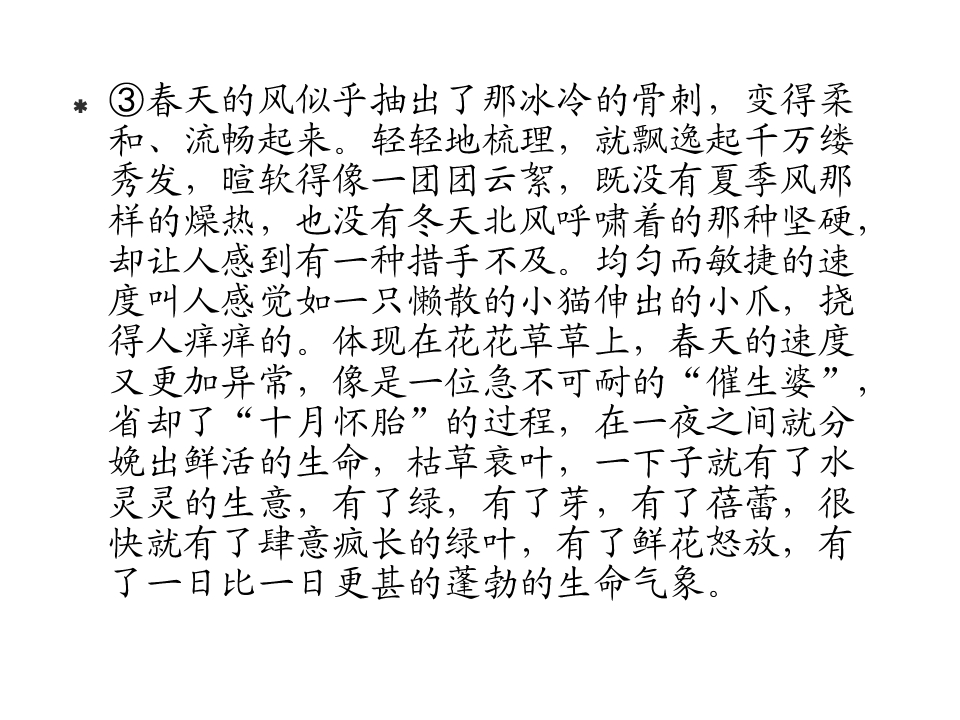 ③春天的风似乎抽出了那冰冷的骨刺，变得柔
和、流畅起来。轻轻地梳理，就飘逸起千万缕
秀发，暄软得像一团团云絮，既没有夏季风那
样的燥热，也没有冬天北风呼啸着的那种坚硬，
却让人感到有一种措手不及。均匀而敏捷的速
度叫人感觉如一只懒散的小猫伸出的小爪，挠
得人痒痒的。体现在花花草草上，春天的速度
又更加异常，像是一位急不可耐的“催生婆”，
省却了“十月怀胎”的过程，在一夜之间就分
娩出鲜活的生命，枯草衰叶，一下子就有了水
灵灵的生意，有了绿，有了芽，有了蓓蕾，很
快就有了肆意疯长的绿叶，有了鲜花怒放，有
了一日比一日更甚的蓬勃的生命气象。